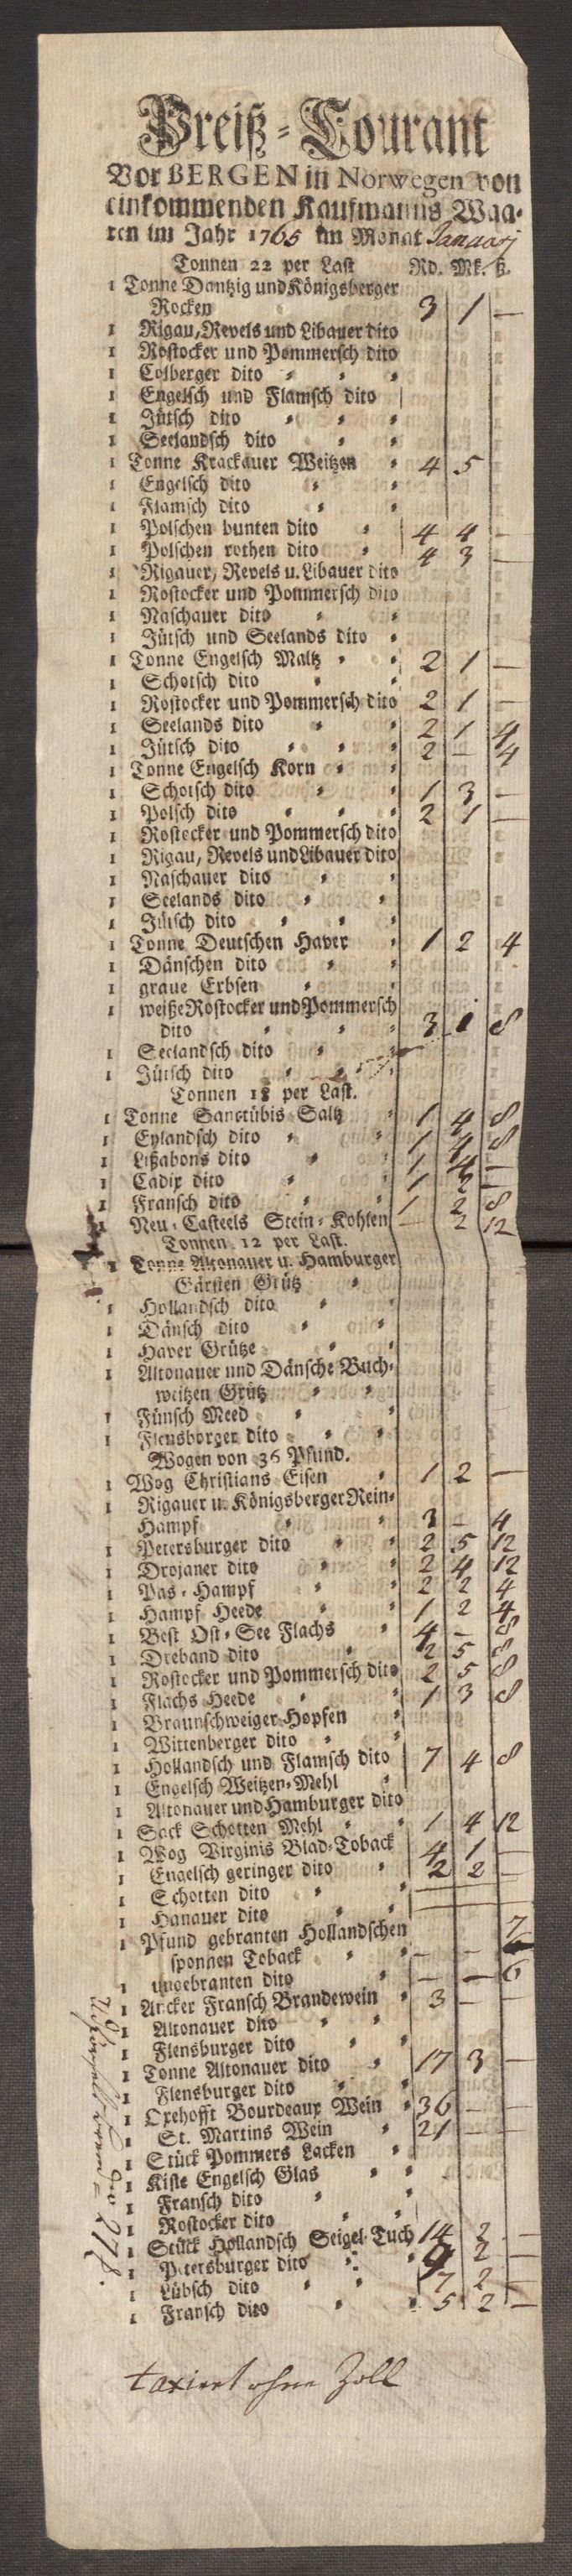 Preiß-Courant
Vor BERGEN in Norwegen von
einkommenden Kaufmanns Waa-
ren im Jahr 1765 im Monat Januarj
Tonnen 22 per Last Rd. Mk. ß.
1 Tonne Dantzig und Königsberger
Rocken 3 1 —
1 Rigau, Revels und Libauer dito
1 Rostocker und Pommersch dito
1 Colberger dito
1 Engelsch und Flamsch dito
1 Jütsch dito
1 Seelandsch dito
1 Tonne Krackauer Weitzen 4 5
1 Engelsch dito
1 Flamsch dito
1 Polschen bunten dito 4 4 —
1 Polschen rothen dito 4 3 —
1 Rigauer, Revels u. Libauer dito
1 Rostocker und Pommersch dito
1 Naschauer dito
1 Jütsch und Seelands dito
1 Tonne Engelsch Maltz 2 1 —
1 Schotsch dito
1 Rostocker und Pommersch dito 2 1 —
1 Seelands dito 2 1 4
1 Jütsch dito 2 — 4
1 Tonne Engelsch Korn
1 Schotsch dito 1 3 —
1 Polsch dito 2 1 —
1 Rostocker und Pommersch dito
1 Rigau, Revels und Libauer dito
1 Naschauer dito
1 Seelands dito
1 Jütsch dito
1 Tonne Deutschen Haver 1 2 4
1 Dänschen dito
1 graue Erbsen
1 weiße Rostocker und Pommersch
dito 3 1 8
1 Seelandsch dito
1 Jütsch dito
Tonnen 18 per Last.
1 Tonne Sanctübis Saltz 1 4 8
1 Eylandsch dito 1 4 8
1 Lißabons dito 1 4 —
1 Cadix dito 1 2 —
1 Fransch dito 1 2 8
1 Neu-Casteels Stein-Kohlen — 2 12
Tonnen 12 per Last.
1 Tonne Altonauer u. Hamburger
Gärsten Grütz
1 Hollandsch dito
1 Dänsch dito
1 Haver Grütze
1 Altonauer und Dänsche Buch-
weitzen Grütz
1 Fünsch Meed
1 Flensborger dito
Wogen von 36 Pfund.
1 Wog Christians Eisen 1 2 —
1 Rigauer u. Königsberger Rein-
Hampf 3 — 4
1 Petersburger dito 2 5 12
1 Drojaner dito 2 4 12
1 Pas-Hampf 2 2 4
1 Hampf Heede 1 2 4
1 Best Ost-See Flachs 4 — 8
1 Dreband dito 2 5 8
1 Rostocker und Pommersch dito 2 5 8
1 Flachs Heede 1 3 8
1 Braunschweiger Hopfen
1 Wittenberger dito
1 Hollandsch und Flamsch dito 7 4 8
1 Engelsch Weitzen-Mehl
1 Altonauer und Hamburger dito
1 Sack Schotten Mehl 1 4 12
1 Wog Virginis Blad-Toback 4 1 —
1 Engelsch geringer dito 2 2 —
1 Schotten dito
1 Hanauer dito
1 Pfund gebranten Hollandschen
sponnen Toback — — 7
1 ungebranten dito — — 6
1 Ancker Fransch Brandewein 3 — —
1 Altonauer dito
1 Flensburger dito
1 Tonne Altonauer dito 17 3 —
1 Flensburger dito
1 Oxehofft Bourdeaux Wein 36 — —
1 St. Martins Wein 21 — —
1 Stück Pommers Lacken
1 Kiste Engelsch Glas
1 Fransch dito
1 Rostocker dito
1 Stück Hollandsch Seigel-Tuch 14 2 —
1 Petersburger dito 9 2 —
1 Lübsch dito 7 2 —
1 Fransch dito 5 2 —
taxiert ohne Zoll